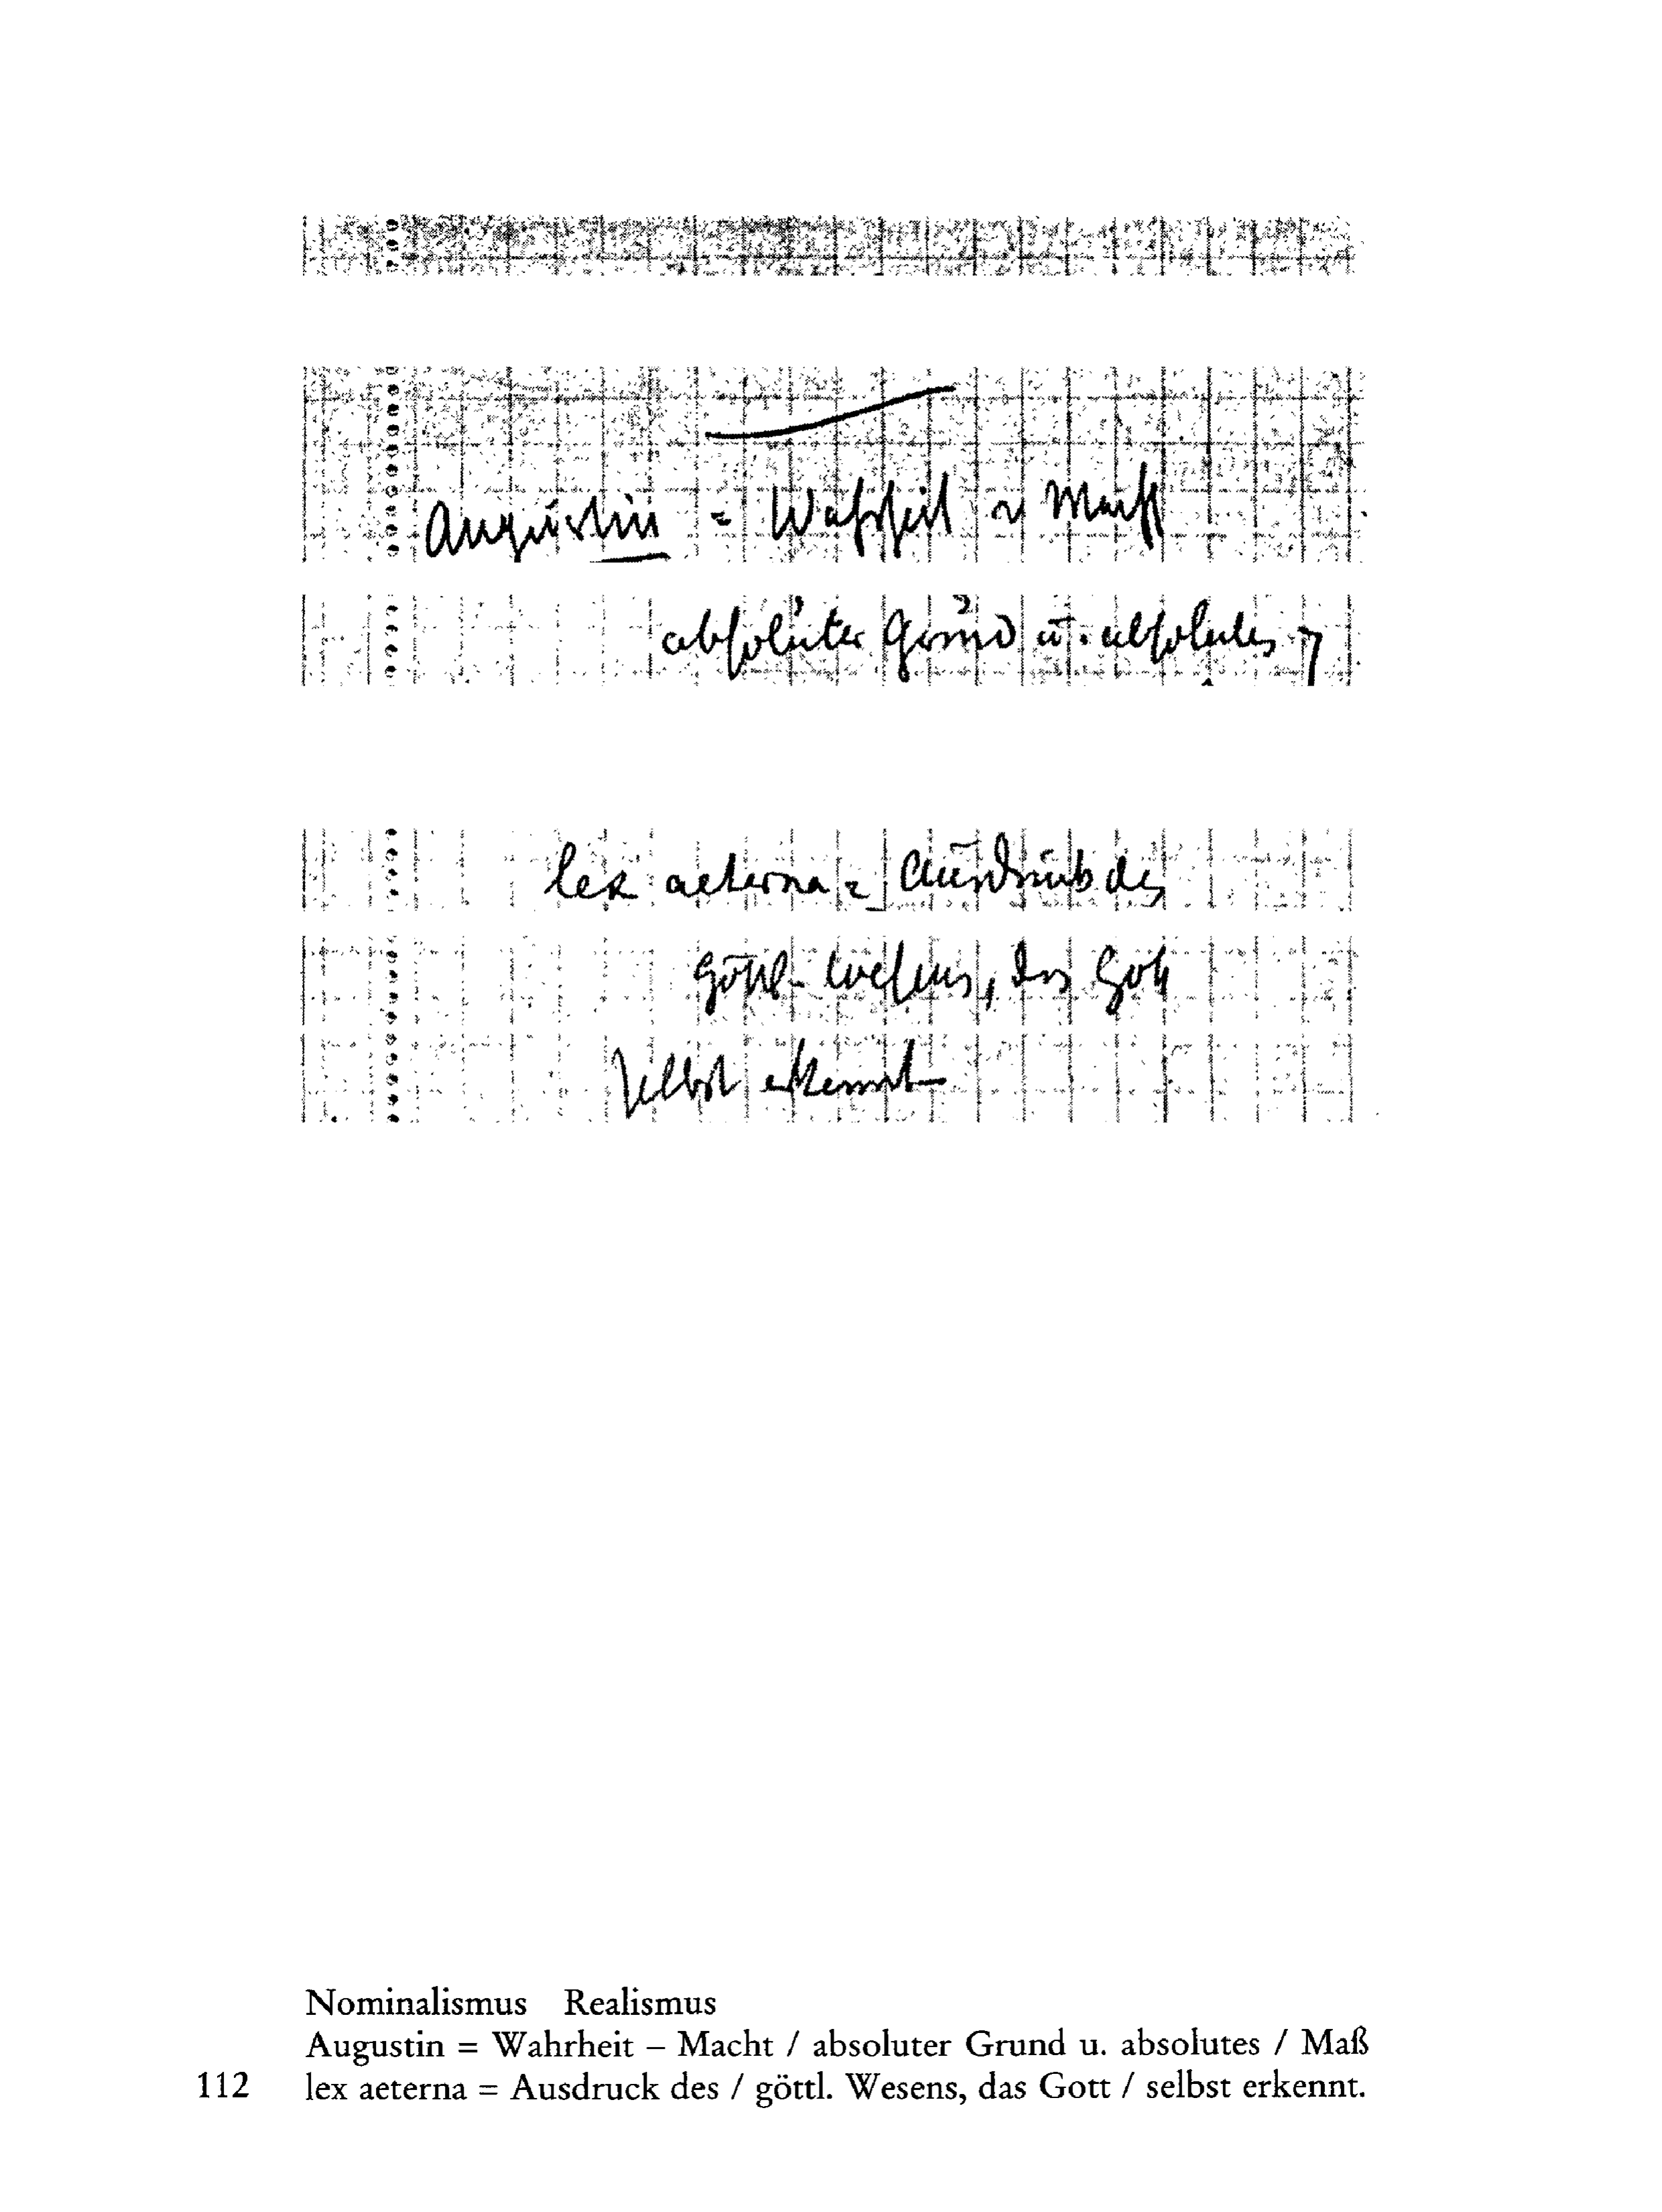 Augustin = Wahrheit ~ Macht
absoluter Grund u. absolutes
lex aeterna = Ausdruck des
göttl. Wesens, das Gott
selbst erkennt
Nominalismus Realismus
Augustin = Wahrheit – Macht / absoluter Grund u. absolutes / Maß
112 lex aeterna = Ausdruck des / göttl. Wesens, das Gott / selbst erkennt.